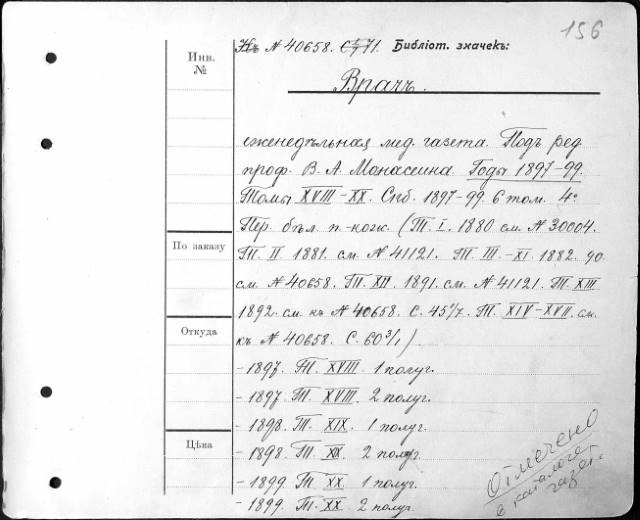 156
Инв. №
Къ № 40658. С 7/71. Библіот. значекъ:
Врачъ.
еженедѣльная мед. газета. Подъ ред.
проф. В. А. Манасеина. Годы 1897-99.
Томы XVIII-XX. Спб. 1897-99. 6 том. 4º
Пер. бѣл. п.-кож. (Т. I. 1880 см. № 30004.
По заказу
Т. II. 1881. см. № 41121. Т. III.-XI. 1882. 90
см. № 40658. Т. XII. 1891. см. № 41121. Т. XIII
1892. см. къ № 40658. С. 45 1/7. Т. XIV-XVII. см.
Откуда
къ № 40658. С. 60 3/1)
- 1897. Т. XVIII. 1 полуг.
- 1897. Т. XVIII. 2 полуг.
- 1898. Т. XIX. 1 полуг.
Цѣна
- 1898. Т. XIX. 2 полуг.
- 1899 Т. XX. 1 полуг.
- 1899. Т. XX. 2 полуг.
Отмечено
в каталоге
газет.